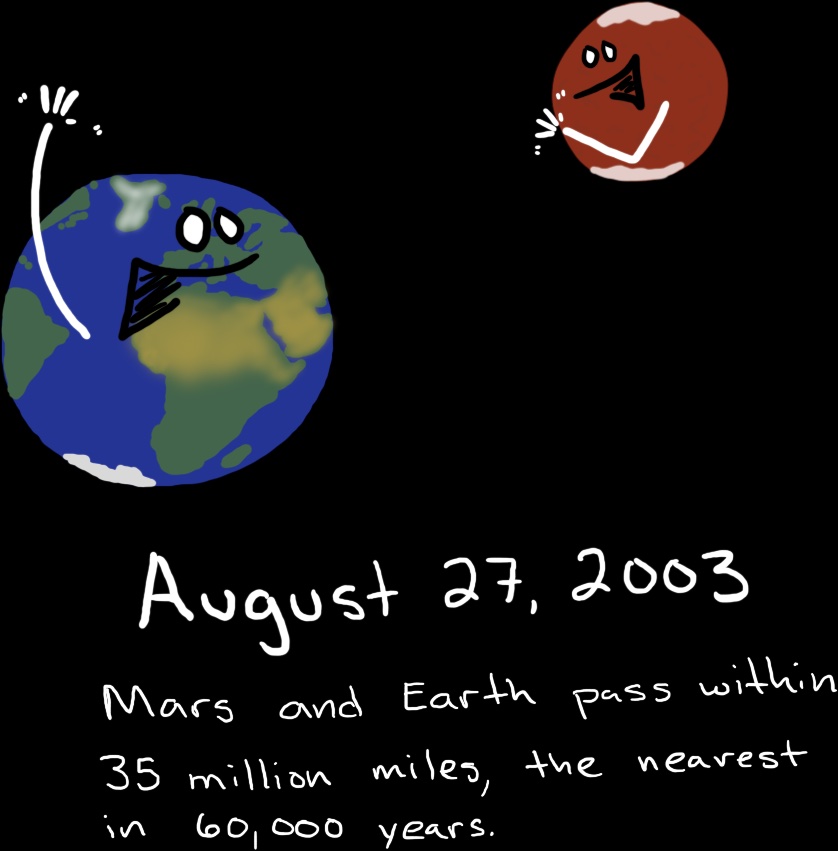 August 27, 2003
Mars and Earth pass within
35 million miles, the nearest
in 60,000 years.